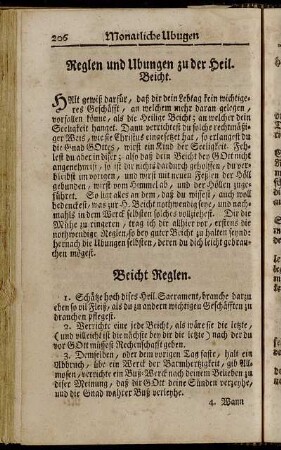 206 Monatliche Ubugen
Reglen und Ubungen zu der Heil.
Beicht.
HAlt gewiß darfür, daß dir dein Lebtag kein wichtige-
res Geschäfft, an welchem mehr daran gelegen,
vorfallen könne, als die Heilige Beicht; an welcher dein
Seeligkeit hanget. Dann verrichtest du solche rechtmäßi-
ger Weis, wie sie Christus eingesetzt hat, so erlangest du
die Gnad GOttes, wirst ein Kind der Seeligkeit. Feh-
lest du aber in diser; also daß dein Beicht bey GOtt nicht
angenehm, so ist dir nicht dardurch geholffen, du ver-
bleibst im vorigen, und wirst mit neuen Fesßen der Höll
gebunden, wirst vom Himmel ab, und der Höllen zuge-
führet. So ligt alles an dem, daß du wissest, auch wol
bedenckest, was zur H. Beicht nothwendig seye, und nach-
mahls in dem Werck selbsten solches vollziehest. Dir die
Mühe zu ringeren, trag ich dir allhier vor, erstens die
nothwendige Reglen, so bey guter Beicht zu halten seynd,
hernach die Ubungen selbsten, deren du dich leicht gebrau-
chen mögest.
Beicht Reglen.
1. Schätze hoch dises Heil. Sacrament, brauche darzu
eben so vil Fleiß, als du zu andern wichtigen Geschäfften zu
brauchen pflegest.
2. Verrichte eine jede Beicht, als wäre sie die letzte,
(und villeicht ist die nächste den dir die letzte) nach der du
vor GOtt müssest Rechenschafft geben.
3. Demselben, oder dem vorigen Tag faste, halt ein
Abbruch, übe ein Werck der Barmhertzigkeit, gib All-
mosen, verrichte ein Buß-Werck nach deinem Belieben zu
diser Meinung, daß dir GOtt deine Sünden verzeyhe,
und die Gnad wahrer Buß verleyhe.
4. Wann